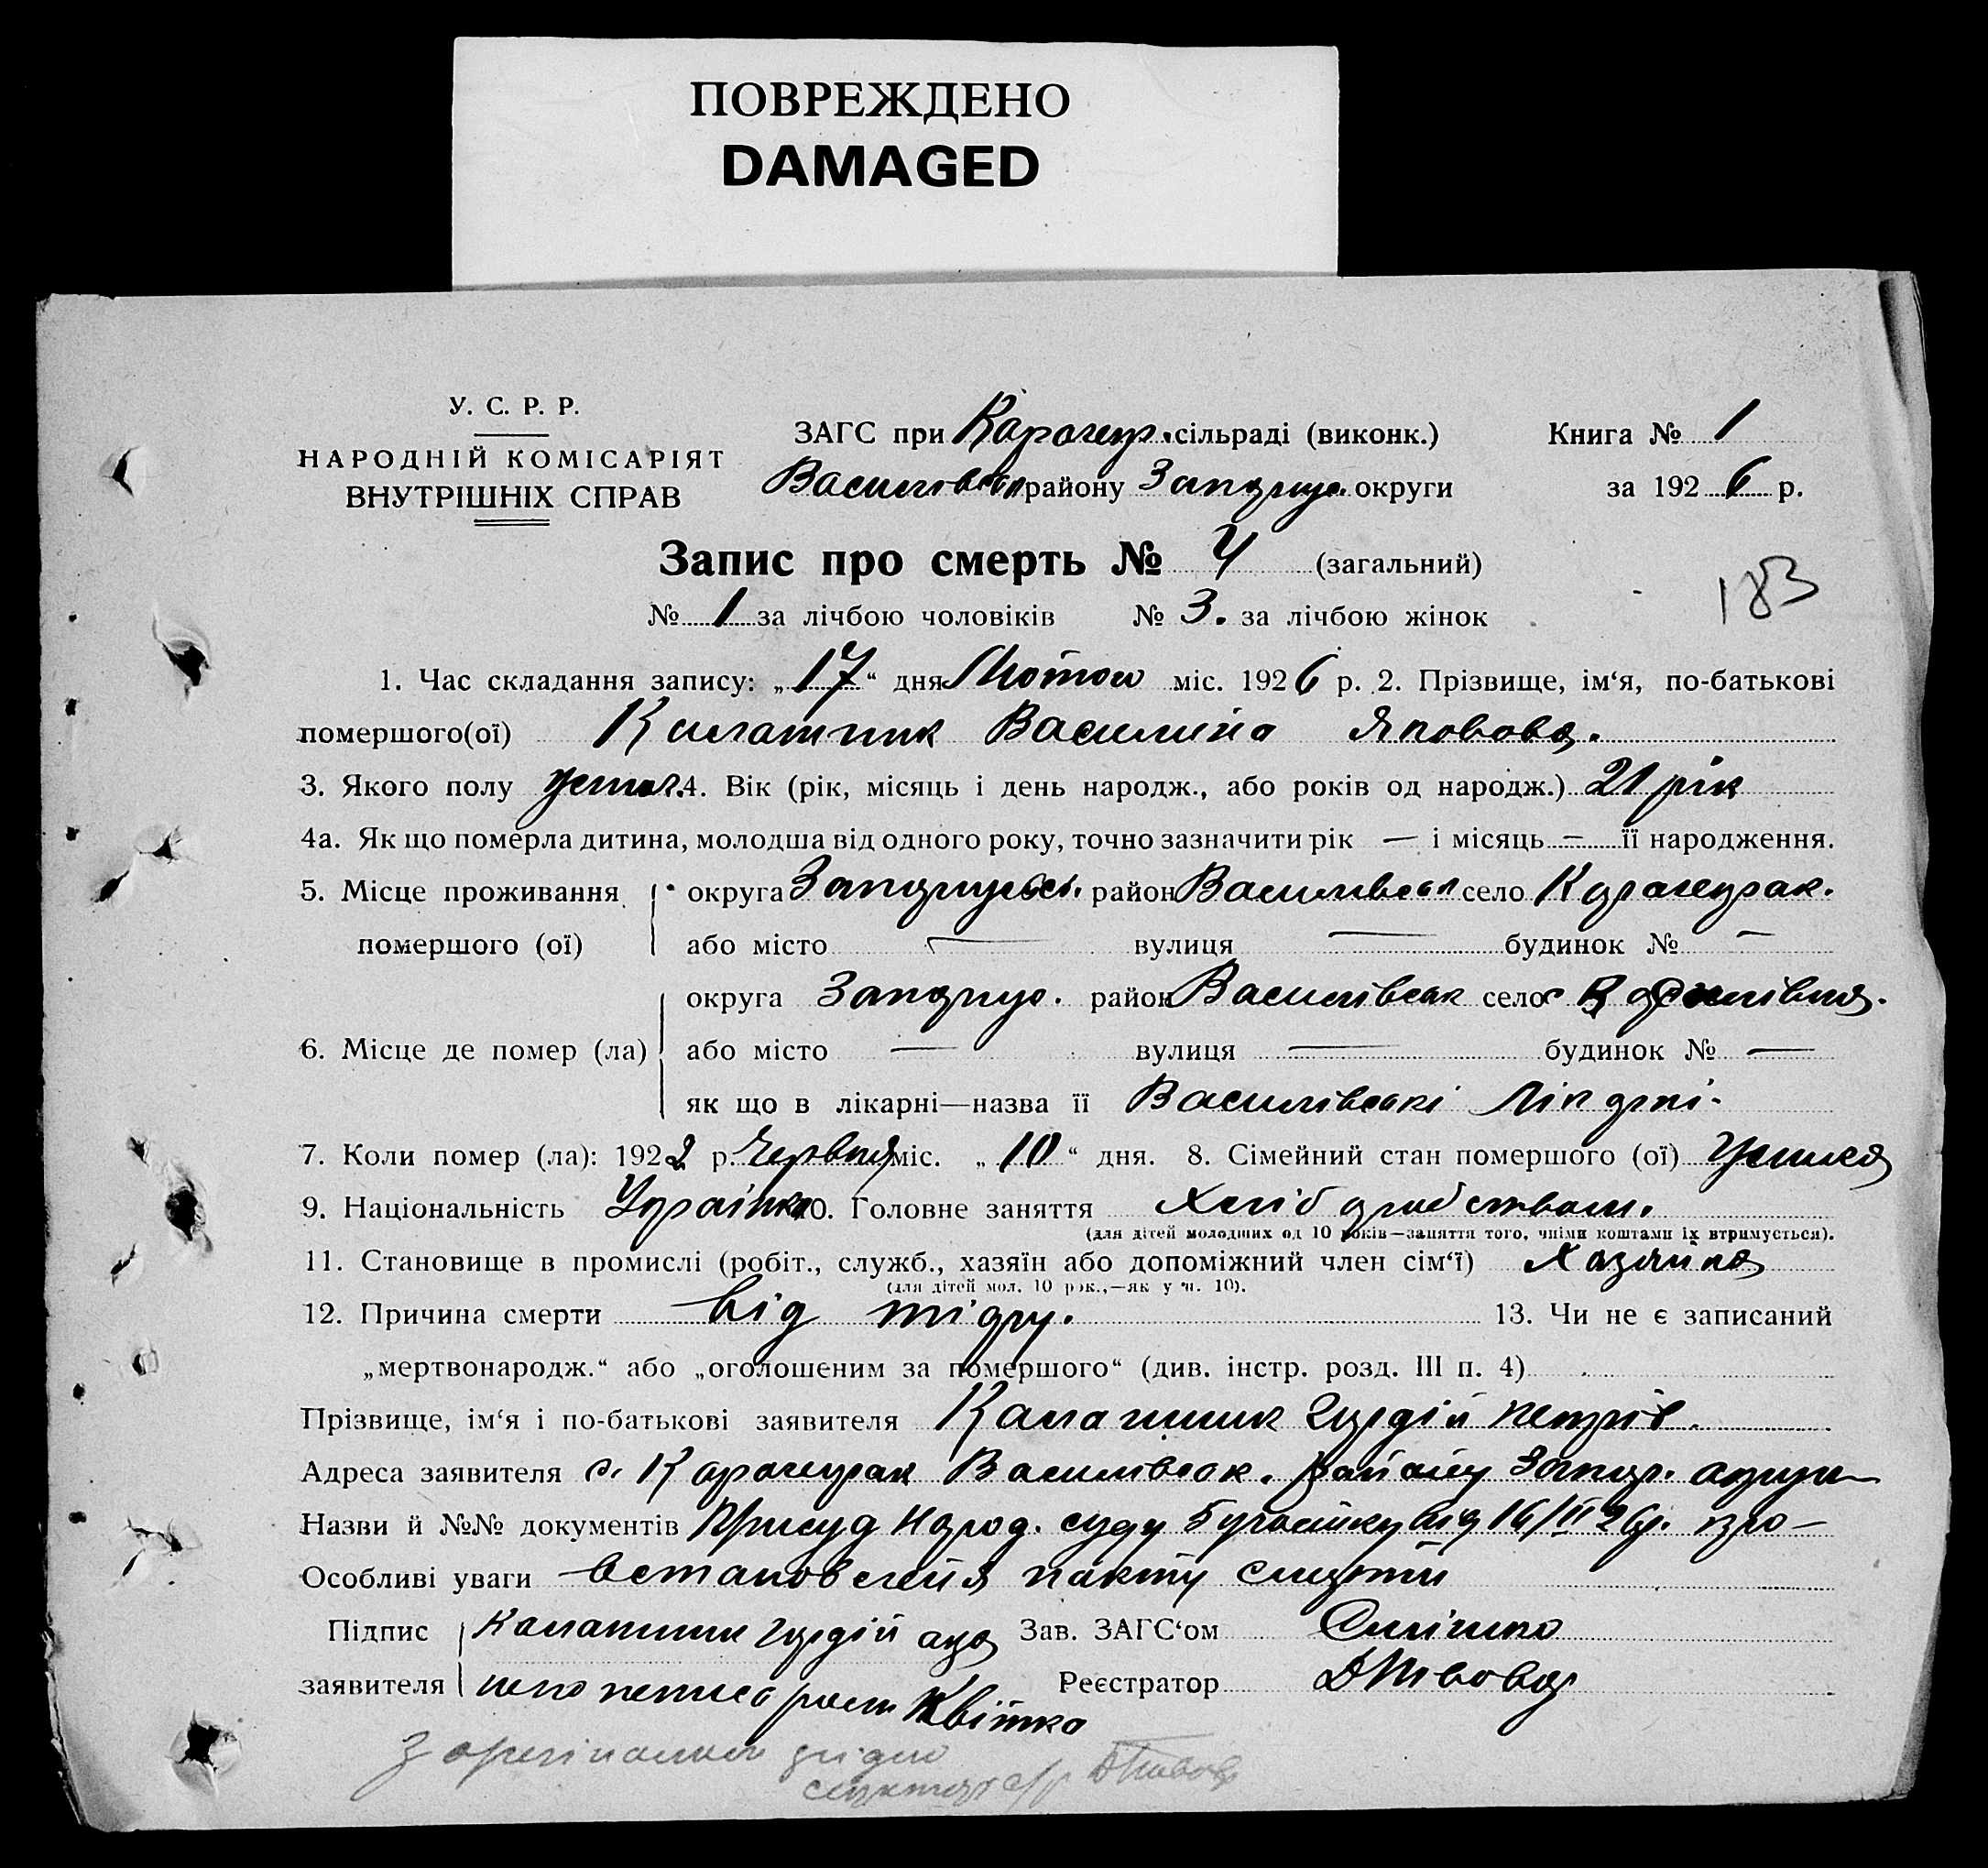 ПОВРЕЖДЕНО
DAMAGED
У. С. Р. Р.
НАРОДНІЙ КОМІСАРІЯТ
ВНУТРІШНІХ СПРАВ
ЗАГС при Карачекр. сільраді (виконк.)
Василівськ району Запоріж. округи
Книга № 1
за 1926 р.
Запис про смерть № 4 (загальний)
№ 1 за лічбою чоловіків № 3. за лічбою жінок
183
1. Час складання запису: „17“ дня Лютого міс. 1926 р. 2. Прізвище, ім‘я, по-батькові
помершого(ої) Калашник Василина Яковова.
3. Якого полу 4. Вік (рік, місяць і день народж., або років од народж.) 21 рік
4а. Як що померла дитина, молодша від одного року, точно зазначити рік — і місяць — її народження.
5. Місце проживання округа район Василівськ село Карачекрак.
помершого (ої) або місто — вулиця — будинок № —
округа район Василівськ село
6. Місце де помер (ла) або місто — вулиця — будинок № —
як що в лікарні—назва її Василівські
7. Коли помер (ла): 1922 р. Червня міс. „10“ дня. 8. Сімейний стан помершого (ої)
9. Національність Українка 10. Головне заняття Хліборобством.
(для дітей молодших од 10 років—заняття того, чиїми коштами їх втримується).
11. Становище в промислі (робіт., служб., хазяїн або допоміжний член сім‘ї) Хазяйка
(для дітей мол. 10 рок.,—як у п. 10).
12. Причина смерти від тифу. 13. Чи не є записаний
„мертвонародж.“ або „оголошеним за помершого“ (див. інстр. розд. III п. 4)
Прізвище, ім‘я і по-батькові заявителя Калашник Гордій Петрів.
Адреса заявителя с. Карачекрак Василівськ. району Запор. округи
Назви й №№ документів Присуд Народ. суду від 16/II 26р. про—
Особливі уваги встановлення факту смерти
Підпис Калашник Гордій а за Зав. ЗАГС‘ом
заявителя Квітка Реєстратор
З оригіналом згідно
секретар с/р